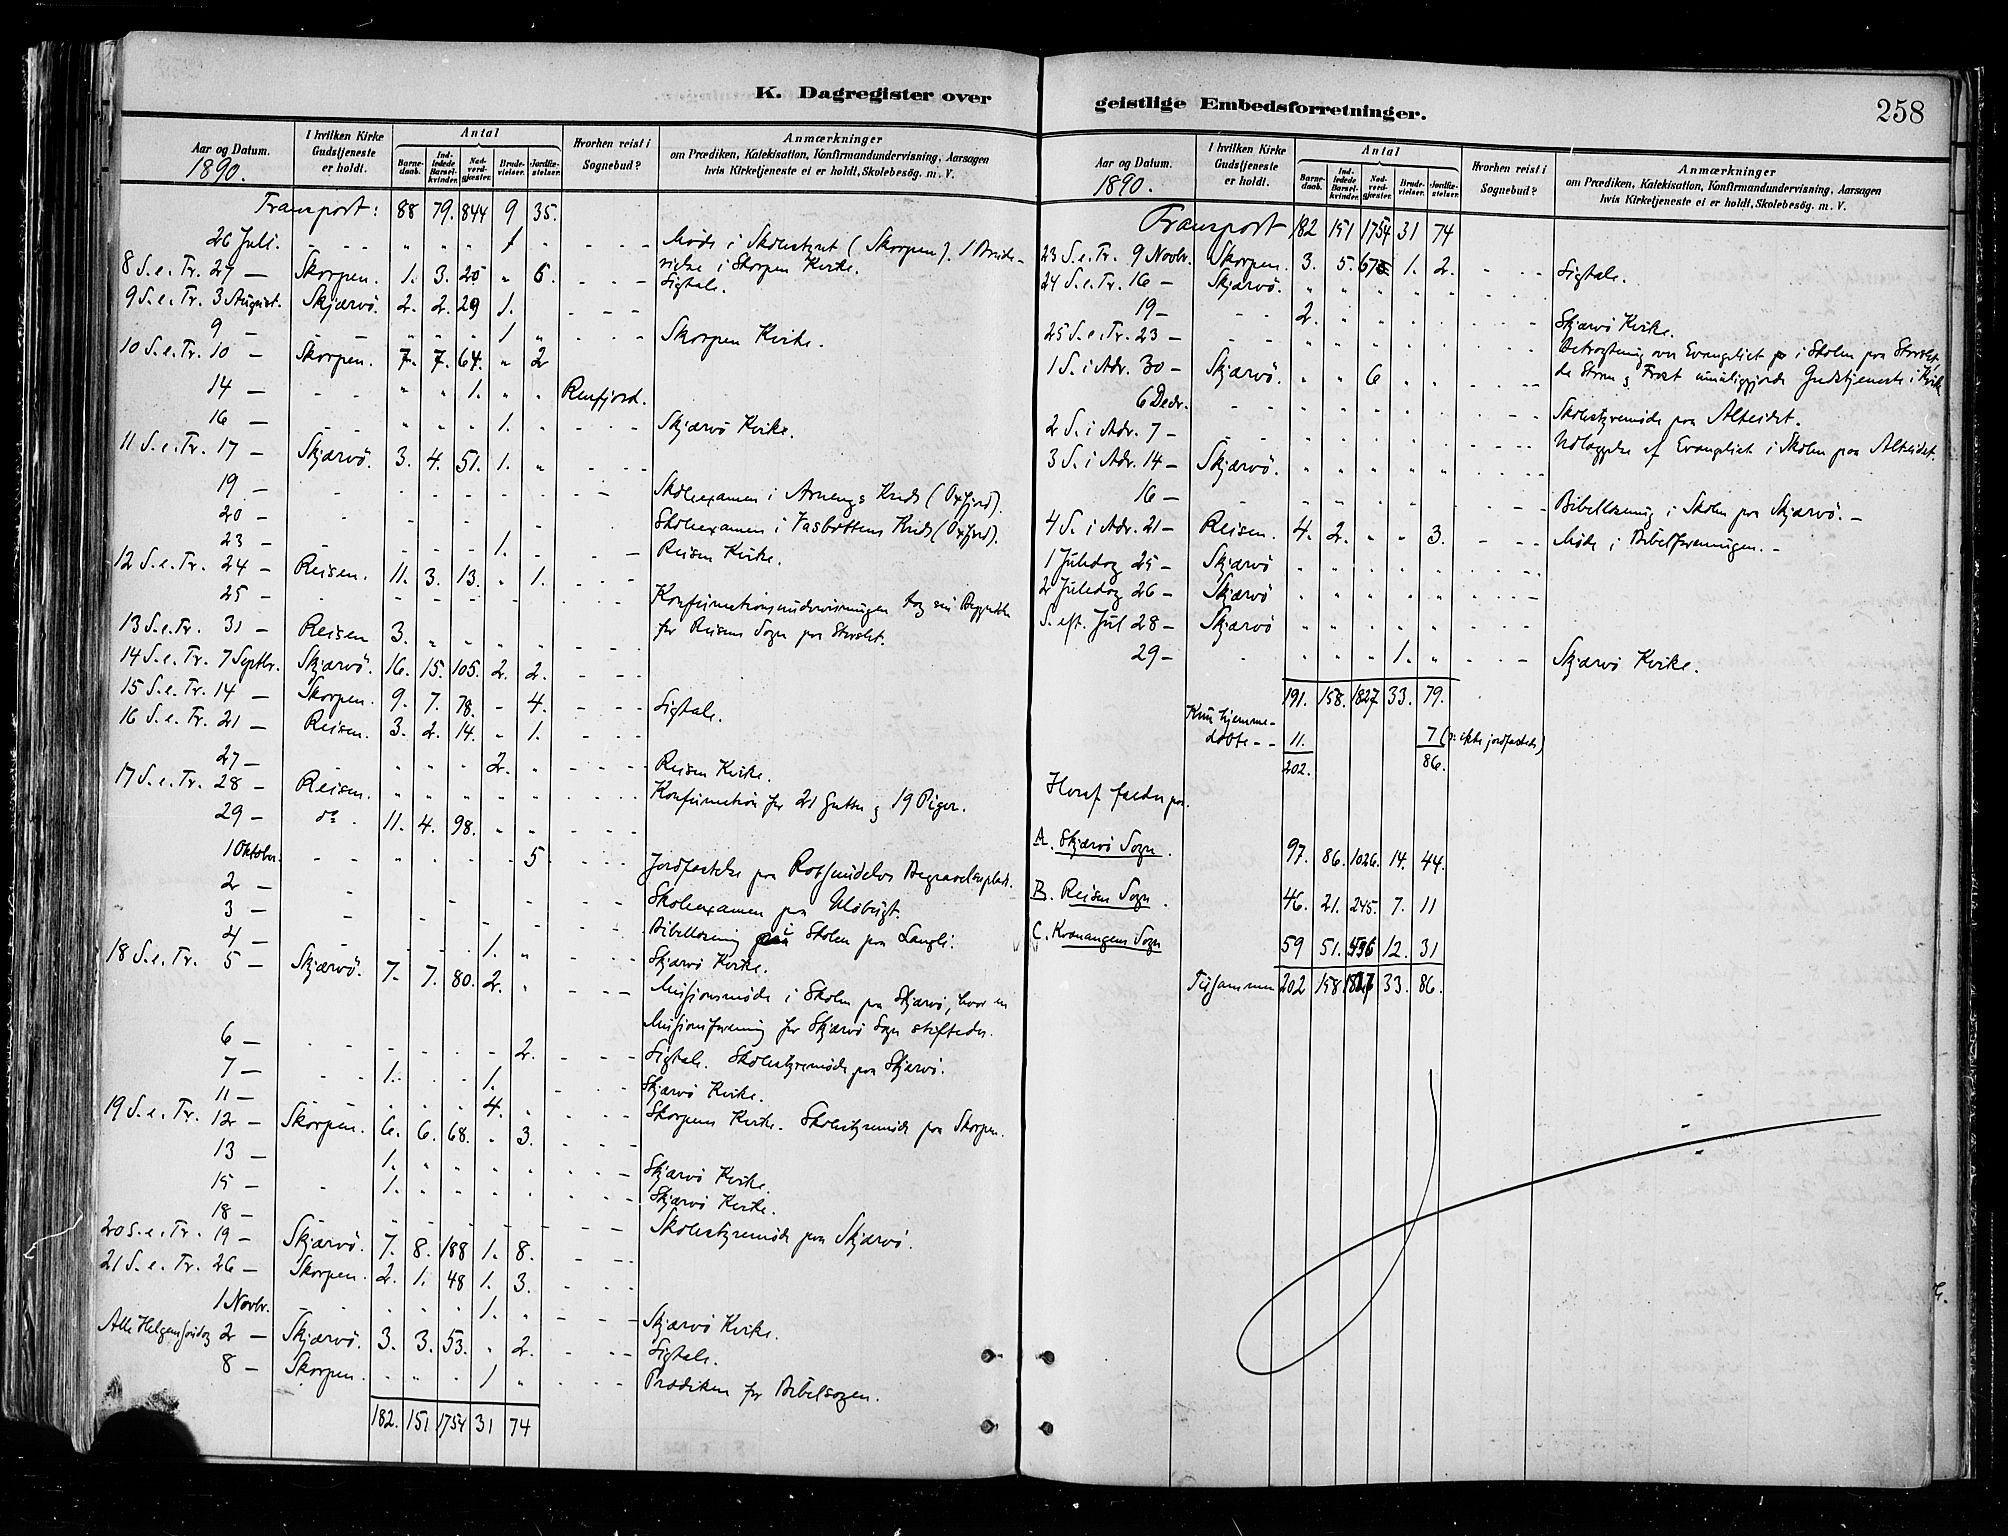 K. Dagregister over
Aar og Datum.
1890.
I hvilken Kirke Gudstjeneste er holdt.
Antal
Barnedaab.
Indledede Barselkvinder.
Nadverdgjæster.
Brudevielser.
Jordfæstelser.
Hvorhen reist i Sognebud?
Anmærkninger
om Prædiken, Katekisation, Konfirmandundervisning, Aarsagen
hvis Kirketjeneste ei er holdt, Skolebesøg. m. V.
Transport: 88 79. 844 9 35.
26 Juli. - - - „ „ „ 1 - - - - Møde i Skolestyret (Skorpen). 1 Brude-
vielse i Skorpen Kirke.
8 S. e. Tr. 27 — Skorpen. 1. 3. 25 „ 6. - - - Ligtale.
9 S. e. Tr. 3 August. Skjærvö. 2. 2. 29 1. - - -
9 — - - „ „ „ 1 „ - - - Skorpen Kirke.
10 S. e. Tr. 10 — Skorpen. 7. 7. 64. „ 2
14 — - - - „ „ 1. „ „ Rensfjord.
16 — - - - „ „ „ 1. „ - - - Skjærvö Kirke.
11 S. e. Tr. 17 — Skjærvö. 3. 4. 51. 1. „ - - -
19 — - - - - - - - - - - Skoleexamen i Arnengs Kreds (Oxfjord).
20 — - - - - - - - Skoleexamen i Vasbottens Kreds (Oxfjord).
23 — - - - - - 1. - - - - Reisen Kirke.
12 S. e. Tr. 24 — Reisen. 11. 3. 13. „ 1. - - -
25 — - - - - - - - - - - Konfirmationsundervisningen tog sin Begyndelse
for Reisens Sogn paa Storslet.
13 S. e. Tr. 31 — Reisen 3. „ „ „ „ - - -
14 S. e. Tr. 7 Septbr. Skjærvö. 16. 15. 105. 2. 2. - - -
15 S. e. Tr. 14 — Skorpen. 9. 7. 78. - 4. - - - Ligtale.
16 S. e. Tr. 21 — Reisen. 3. 2. 14. „ 1. - - -
27 — - - - - - 2. „ - - - Reisen Kirke.
17 S. e. Tr. 28 — Reisen. „ „ „ „ „ - - - Konfirmation for 21 Gutter og 19 Piger.
29 — do. 11. 4. 98. „ „ - - -
1 Oktober. - - - „ „ „ - 5 - - - Jordfæstelse paa Begravelsesplads.
2 — - - - - - - - Skoleexamen paa Uløbugt.
3 — - - - - - - - Bibellæsning Skolen paa Langli.
4 — - - - - 1. „ - - - Skjærvö Kirke.
18 S. e. Tr. 5 — Skjærvö. 7. 7. 80. 2. „ - - - Missionsmøde i Skolen paa Skjærvö, hvor en
Missionsforening for Skjærvö Sogn stiftedes.
6 — - - - - - - 2. - - - Ligtale. Skolestyremøde paa Skjærvö.
7 — - - - 1. - - 1. - - - - Skjærvö Kirke.
11 — - - - - - 4. „ - - - Skorpens Kirke. Skolestyremøde paa Skorpen.
19 S. e. Tr. 12 — Skorpen. 6. 6. 68. „ 3. - - -
13 — - 1. „ „ „ „ - - - Skjærvö Kirke.
15 — - 1. „ „ „ „ - - - Skjærvö Kirke.
18 — - - - - - - - - - Skolestyremøde paa Skjærvö.
20 S. e. Tr. 19 — Skjærvö. 7. 8. 188 1. 8. - - -
21 S. e. Tr. 26 — Skorpen. 2. 1. 48 1. 3. - - -
1 Novbr. - - - - - 1. „ - - - Skjærvö Kirke.
Alle Helgensdag 2 — Skjærvö. 3. 3. 53. „ 2. - - - Ligtale.
8 — Skorpen. „ „ „ 1 „ - - - Prædiken for Bibelsagen.
182. 151 1754 31 74
geistlige Embedsforretninger.
258
Aar og Datum.
1890.
I hvilken Kirke Gudstjeneste er holdt.
Antal
Barnedaab.
Indledede Barselkvinder.
Nadverdgjæster.
Brudevielser.
Jordfæstelser.
Hvorhen reist i Sognebud?
Anmærkninger
om Prædiken, Katekisation, Konfirmandundervisning, Aarsagen
hvis Kirketjeneste ei er holdt, Skolebesøg. m. V.
Transport 182 151 1754 31 74
23 S. e. Tr. 9 Novbr. Skorpen. 3. 5. 67 1. 2. - - - Ligtale.
24 S. e. Tr. 16 — Skjærvö. „ „ „ „ „ - - -
19 — - - 2. „ „ „ „ - - - Skjærvö Kirke.
25 S. e. Tr. 23 — - - „ „ „ „ „ - - - Betragtning over Evangeliet i Skolen paa Storslet,
da Storm og Frost umuliggjorde Gudstjeneste i Kirken
1 S. i Adv. 30 — Skjærvö. „ „ 6 „ „ - - -
6 Decbr. - - - - - - - - - Skolestyremøde paa Alteidet.
2 S. i Adv. 7 — - - - - - - - - - Udlæggelse af Evangeliet i Skolen paa Alteidet.
3 S. i Adv. 14 — Skjærvö. „ „ „ „ „ - - -
16 — - - „ „ „ „ „ - - - Bibellæsning i Skolen paa Skjærvö. —
4 S. i Adv. 21 — Reisen. 4. 2. „ „ 3. - - - Møde i Bibelforeningen. —
1 Juledag 25 — Skjærvö „ „ „ „ „ - - -
2 Juledag 26 — Skjærvö „ „ „ „ „ - - -
S. eft. Jul 28 — Skjærvö „ „ „ „ „ - - -
29 — - „ „ „ 1. „ - - - Skjærvö Kirke.
191. 158. 1827 33. 79.
Kun hjemme-
døbte - - 11. 7 (o: ikke jordfæstede)
202. 86.
Heraf falder paa
A. Skjærvö Sogn. 97. 86. 1026. 14. 44.
B. Reisen Sogn. 46. 21. 245. 7. 11
C. Kvænangens Sogn 59 51. 556 12. 31
Tilsammen 202 158 1827 33. 86.